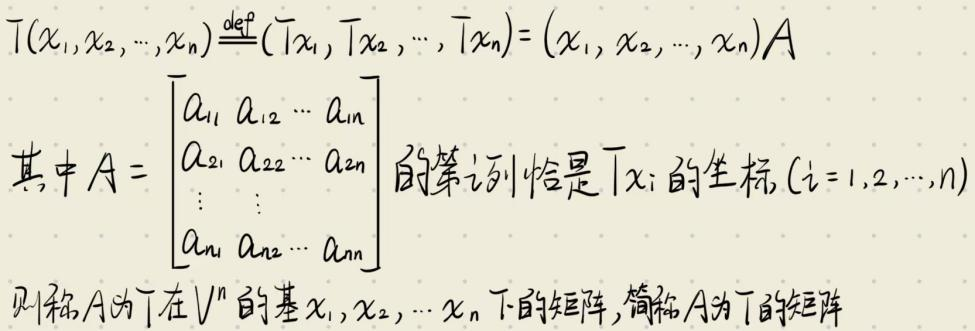 T(x₁,x₂,⋯,xₙ)≝(Tx₁,Tx₂,⋯,Txₙ)=(x₁,x₂,⋯,xₙ)A
其中A=[a₁₁ a₁₂ ⋯ a₁ₙ
a₂₁ a₂₂ ⋯ a₂ₙ
⋮ ⋮
aₙ₁ aₙ₂ ⋯ aₙₙ]的第i列恰是Txᵢ的坐标(i=1,2,⋯,n)
则称A为T在Vⁿ的基x₁,x₂,⋯xₙ下的矩阵,简称A为T的矩阵